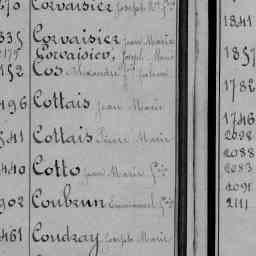 Corvaisier Joseph
335 Corvaisier Jean Marie
2175 Corvaisier, Joseph Marie
152 Cos Alexandre
196 Cottais Jean Marie
541 Cottais Pierre Marie
440 Cotto Jean Marie
902 Coubrun Emmanuel
461 Coudray Joseph Marie
1841
1857
1782
1746
2098
2088
2083
2091
2111